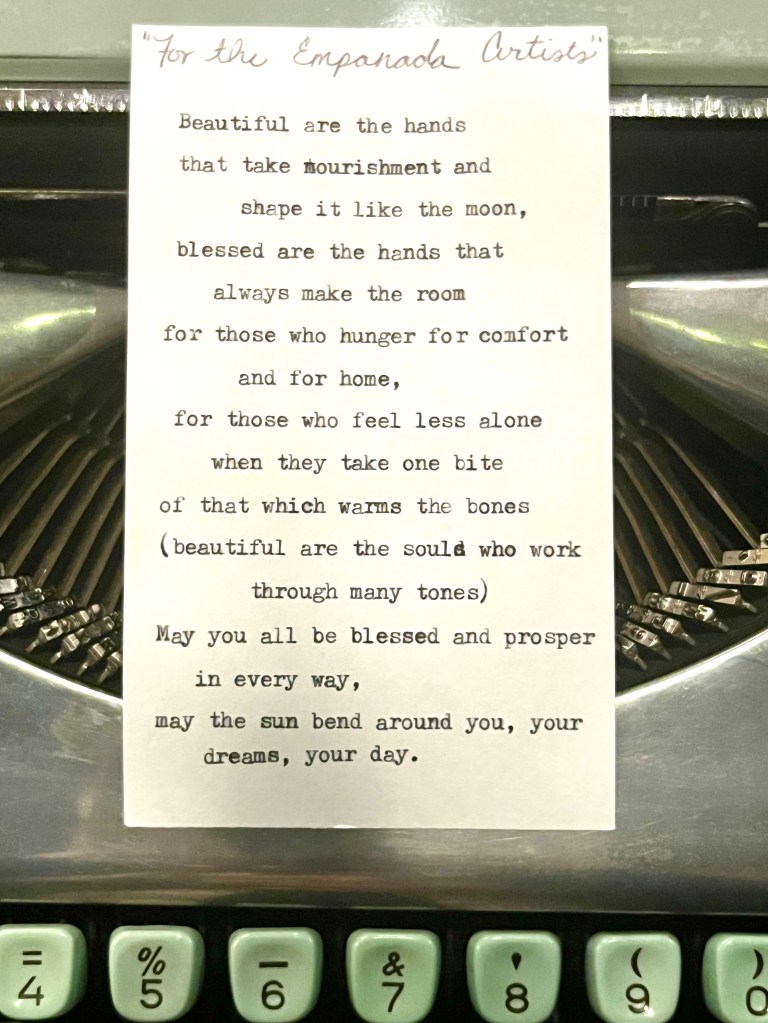 "For the Empanada Artists"
Beautiful are the hands
that take nourishment and
shape it like the moon,
blessed are the hands that
always make the room
for those who hunger for comfort
and for home,
for those who feel less alone
when they take one bite
of that which warms the bones
(beautiful are the souls who work
through many tones)
May you all be blessed and prosper
in every way,
may the sun bend around you, your
dreams, your day.
= % — & ' ( )
4 5 6 7 8 9 0